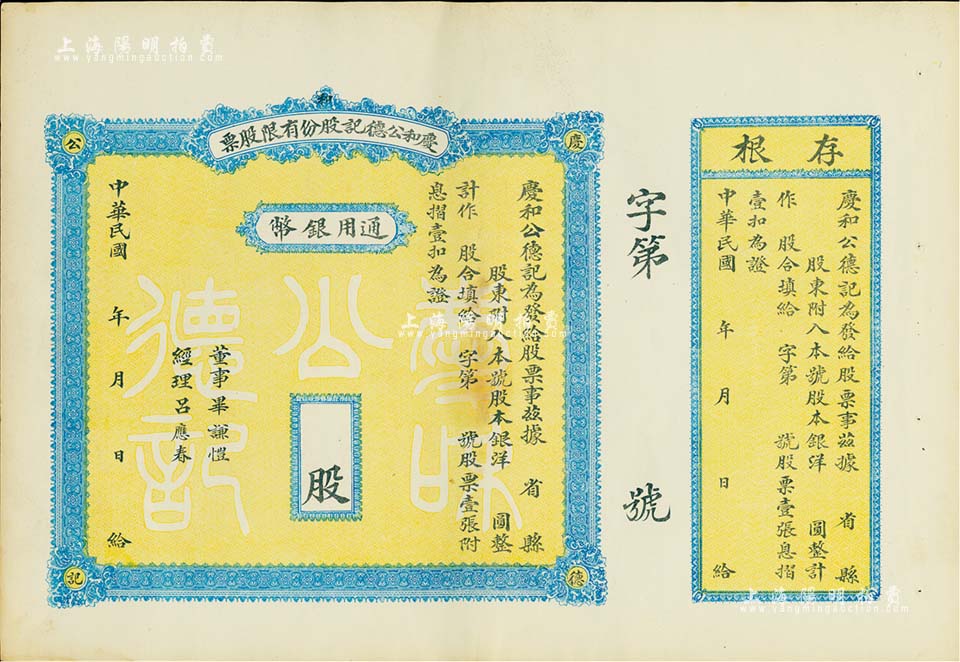 上海陽明拍賣
www.yangmingauction.com
存根
慶和公德記為發給股票事茲據 省 縣
股東附入本號股本銀洋 圓整計
作 股合填給 字第 號股票壹張息摺
壹扣為證
中華民國 年 月 日 給
字第 號
和
慶和公德記股份有限股票
慶
公
德
記
通用銀幣
慶和公德記為發給股票事茲據 省 縣
股東附入本號股本銀洋 圓整
計作 股合填給 字第 號股票壹張附
息摺壹扣為證
股
董事畢謙愷
經理呂應春
中華民國 年 月 日 給
慶和
公
德記
上海陽明拍賣
www.yangmingauction.com
上海陽明拍賣
www.yangmingauction.com